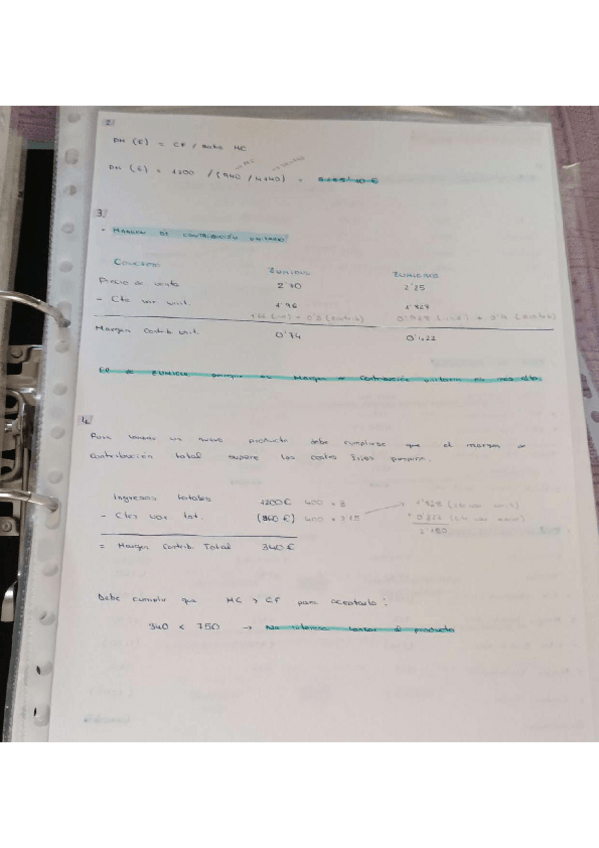 2.
PM (€) = CF / Ratio MC
→ MC → ventas
PM (€) = 1200 / (940 / 4140) =
3.
- MARGEN DE CONTRIBUCIÓN UNITARIO
CONCEPTO
Precio de venta 2'70 2'25
- Cto var unit. 1'96 1'828
Margen Contrib unit. 0'74 0'422
porque su Margen de Contribución unitario es más alto.
4.
Para lanzar un nuevo producto debe cumplirse que el margen de
contribución total supere los costes fijos propios.
Ingresos totales 1200 € 400 x 3
- Ctes var tot. (860 €) 400 x 2'15
= Margen Contrib Total 340 €
Debe cumplir que MC > CF para aceptarlo:
340 < 750 → No interesa lanzar el producto